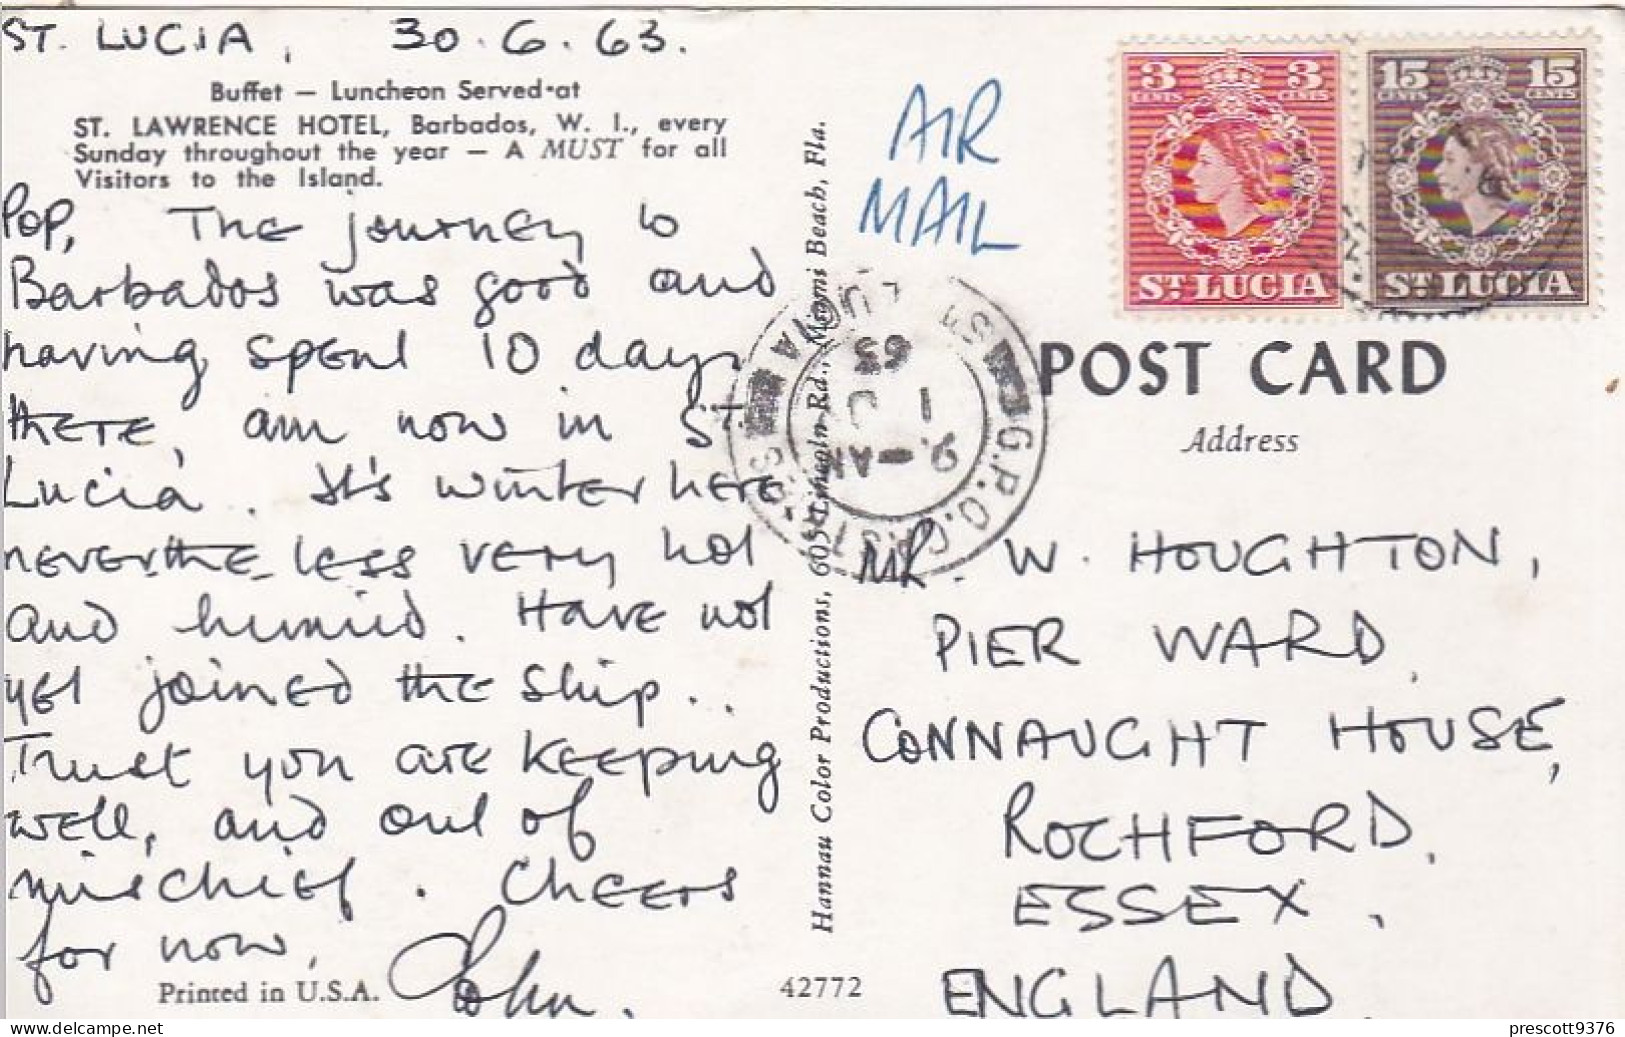 ST. LUCIA, 30.6.63.
Buffet — Luncheon Served at
ST. LAWRENCE HOTEL, Barbados, W. I., every
Sunday throughout the year — A MUST for all
Visitors to the Island.
Pop, The journey to
Barbados was good and
having spent 10 days
there, am now in St.
Lucia. It's winter here
nevertheless very hot
and humid. Have not
yet joined the ship..
Trust you are keeping
well, and out of
mischief. Cheers
for now,
John.
Printed in U.S.A.
Hannau Color Productions, 605 Lincoln Rd., Miami Beach, Fla.
42772
AIR
MAIL
3 CENTS 3 CENTS
ST LUCIA
15 CENTS 15 CENTS
ST LUCIA
G.P.O. CASTRIES ST LUCIA
9-AM
1 JU
63
POST CARD
Address
MR. W. HOUGHTON,
PIER WARD,
CONNAUGHT HOUSE,
ROCHFORD,
ESSEX,
ENGLAND
the-shop-10.delcampe.net
prescott9376